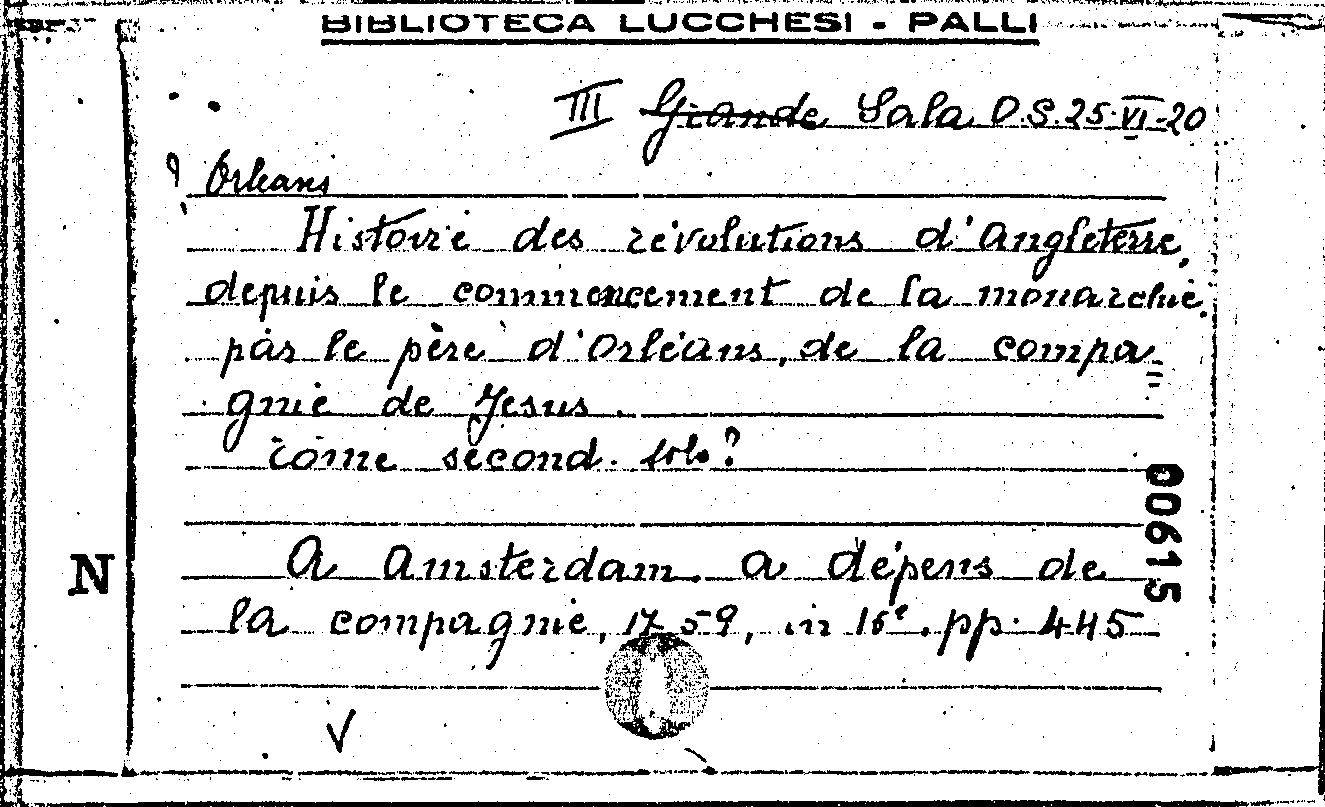 BIBLIOTECA LUCCHESI - PALLI
III Grande Sala D.S. 25-VI-20
? Orleans
Histoire des révolutions d'Angleterre,
depuis le commencement de la monarchie.
par le père d'Orléans, de la compa=
gnie de Jesus.
Tome second. solo?
A Amsterdam. a dépens de
la compagnie, 1759, in 16º. pp. 445
00615
N
V